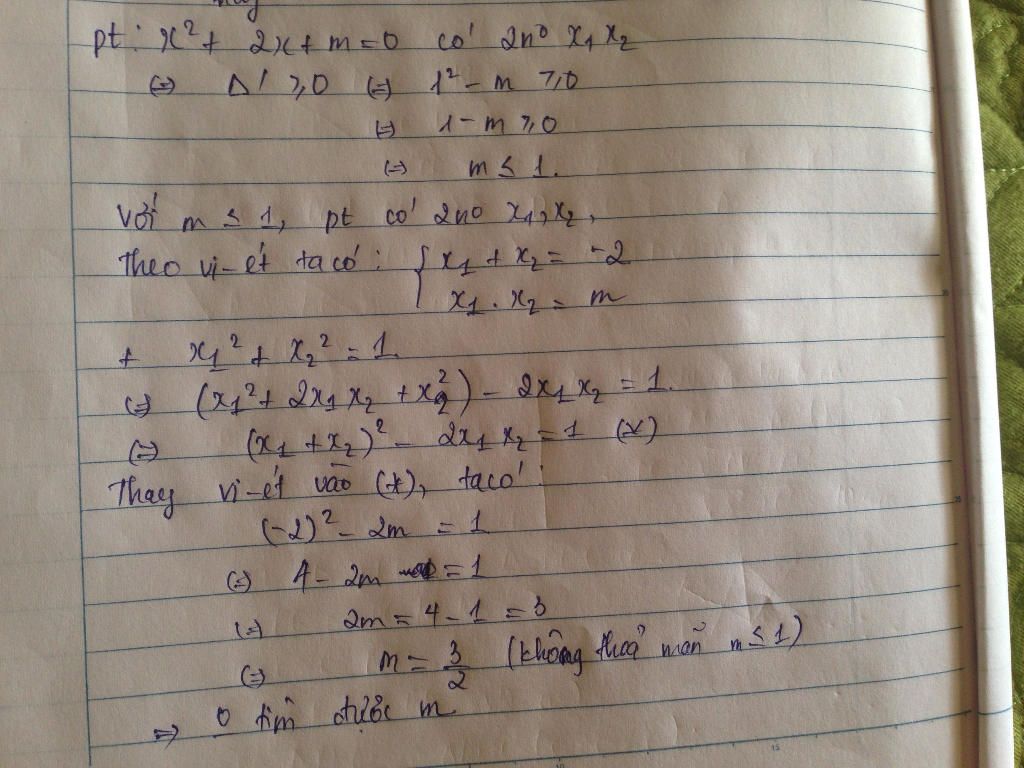 pt: x² + 2x + m = 0 có 2n⁰ x₁ x₂
(=) Δ' ≥ 0 (=) 1² - m ≥ 0
(=) 1 - m ≥ 0
(=) m ≤ 1.
Với m ≤ 1, pt có 2no x₁, x₂,
Theo vi-ét ta có: { x₁ + x₂ = -2
x₁ . x₂ = m
+ x₁² + x₂² = 1.
(=) (x₁² + 2x₁x₂ + x₂²) - 2x₁x₂ = 1.
(=) (x₁ + x₂)² - 2x₁x₂ = 1 (*)
Thay vi-ét vào (*), ta có:
(-2)² - 2m = 1
(=) 4 - 2m = 1
(=) 2m = 4 - 1 = 3
(=) m = 3/2 (không thoả mãn m ≤ 1)
=> 0 tìm được m.